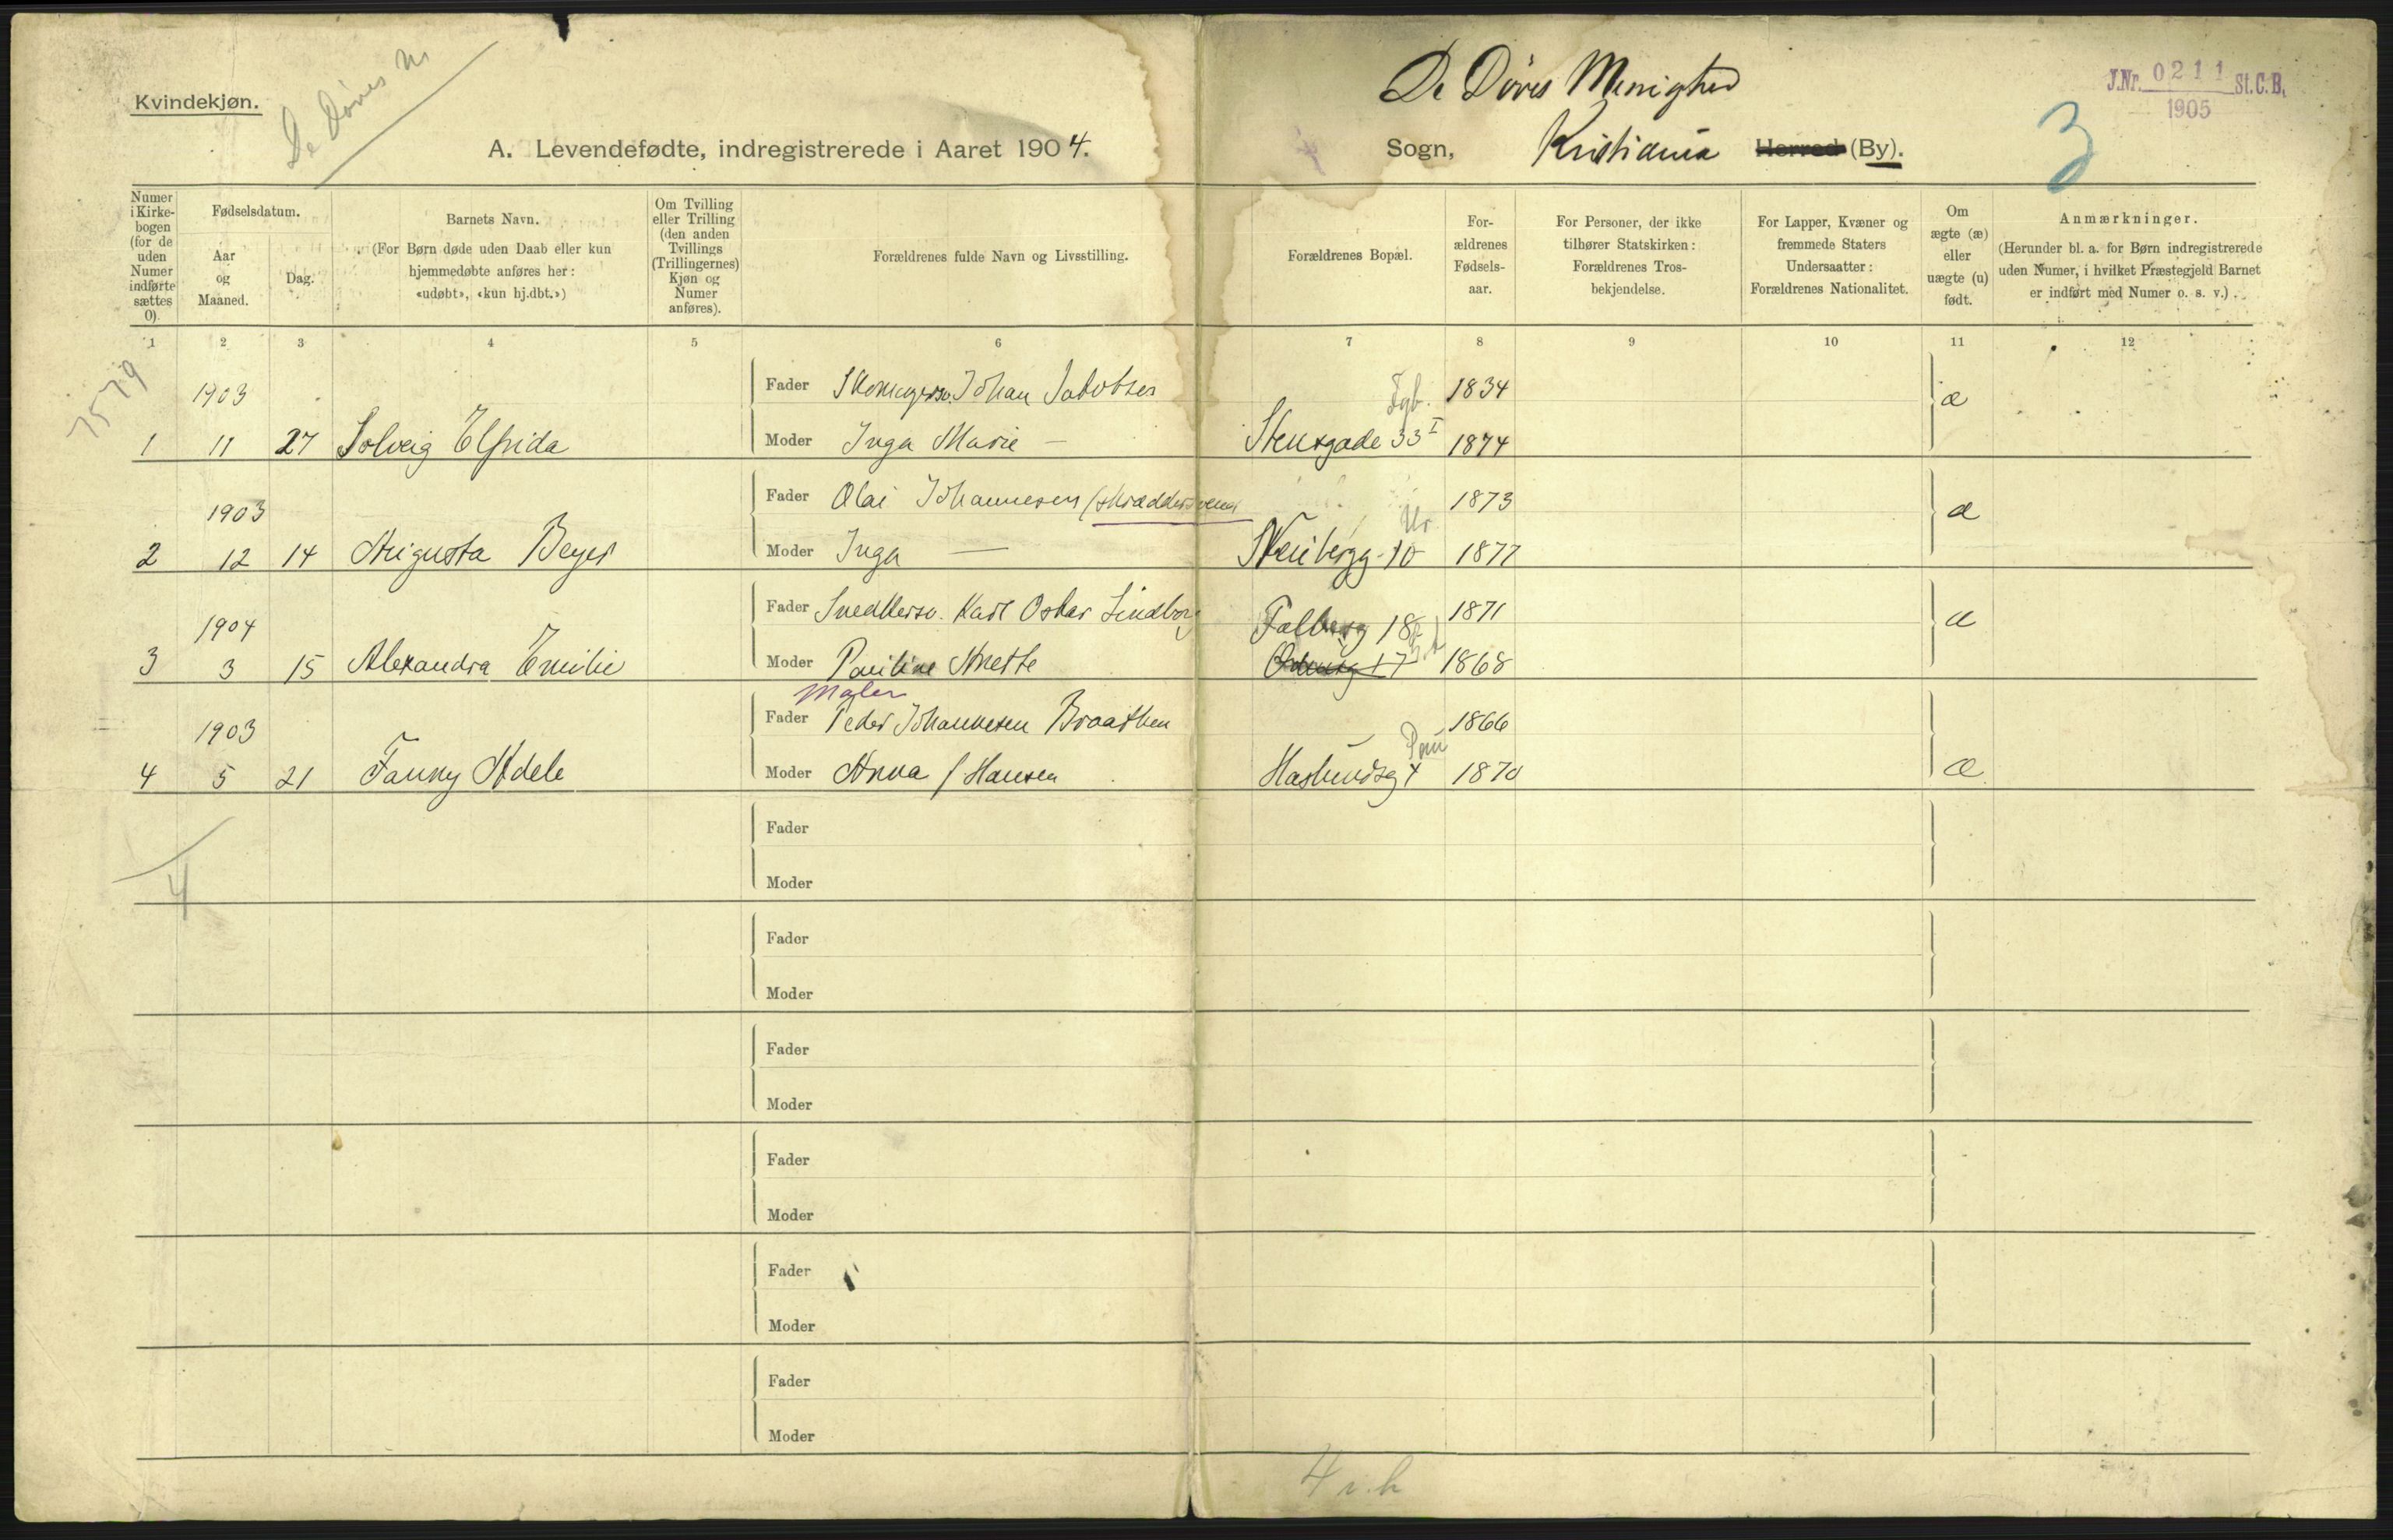 De Døves M
Kvindekjøn.
A. Levendefødte, indregistrerede i Aaret 1904.
De Døves Menighed
Sogn, Kristiania Herred (By).
J.Nr. 0211 St.C.B.
1905
3
Numer i Kirkebogen (for de uden Numer indførte sættes 0).
Fødselsdatum.
Aar og Maaned.
Dag.
Barnets Navn.
(For Børn døde uden Daab eller kun hjemmedøbte anføres her: «udøbt», «kun hj.dbt.»)
Om Tvilling eller Trilling (den anden Tvillings (Trillingernes) Kjøn og Numer anføres).
Forældrenes fulde Navn og Livsstilling.
Forældrenes Bopæl.
Forældrenes Fødselsaar.
For Personer, der ikke tilhører Statskirken: Forældrenes Trosbekjendelse.
For Lapper, Kvæner og fremmede Staters Undersaatter: Forældrenes Nationalitet.
Om ægte (æ) eller uægte (u) født.
Anmærkninger.
(Herunder bl. a. for Børn indregistrerede uden Numer, i hvilket Præstegjeld Barnet er indført med Numer o. s. v.)
1 2 3 4 5 6 7 8 9 10 11 12
7579
1903 Fader Skomagersv. Johan Jakobsen Fgb. 1834 æ
1 11 27 Solveig Elfrida Moder Inga Marie — Stensgade 33 I 1874
1903 Fader Olai Johannesen /skræddersvend 1873 æ
2 12 14 Augusta Beyer Moder Inga — 10 1877
1904 Fader Snedkersv. Karl Oskar Lindborg 18 1871 æ
3 3 15 Alexandra Emilie Moder Pauline Anette 17 1868
Maler
1903 Fader Peder Johannesen Braathen 1866
4 5 21 Fanny Adele Moder Anna f Hansen Haslundsg 4 1870 æ
4
Fader
Moder
Fader
Moder
Fader
Moder
Fader
Moder
Fader
Moder
Fader
Moder
4